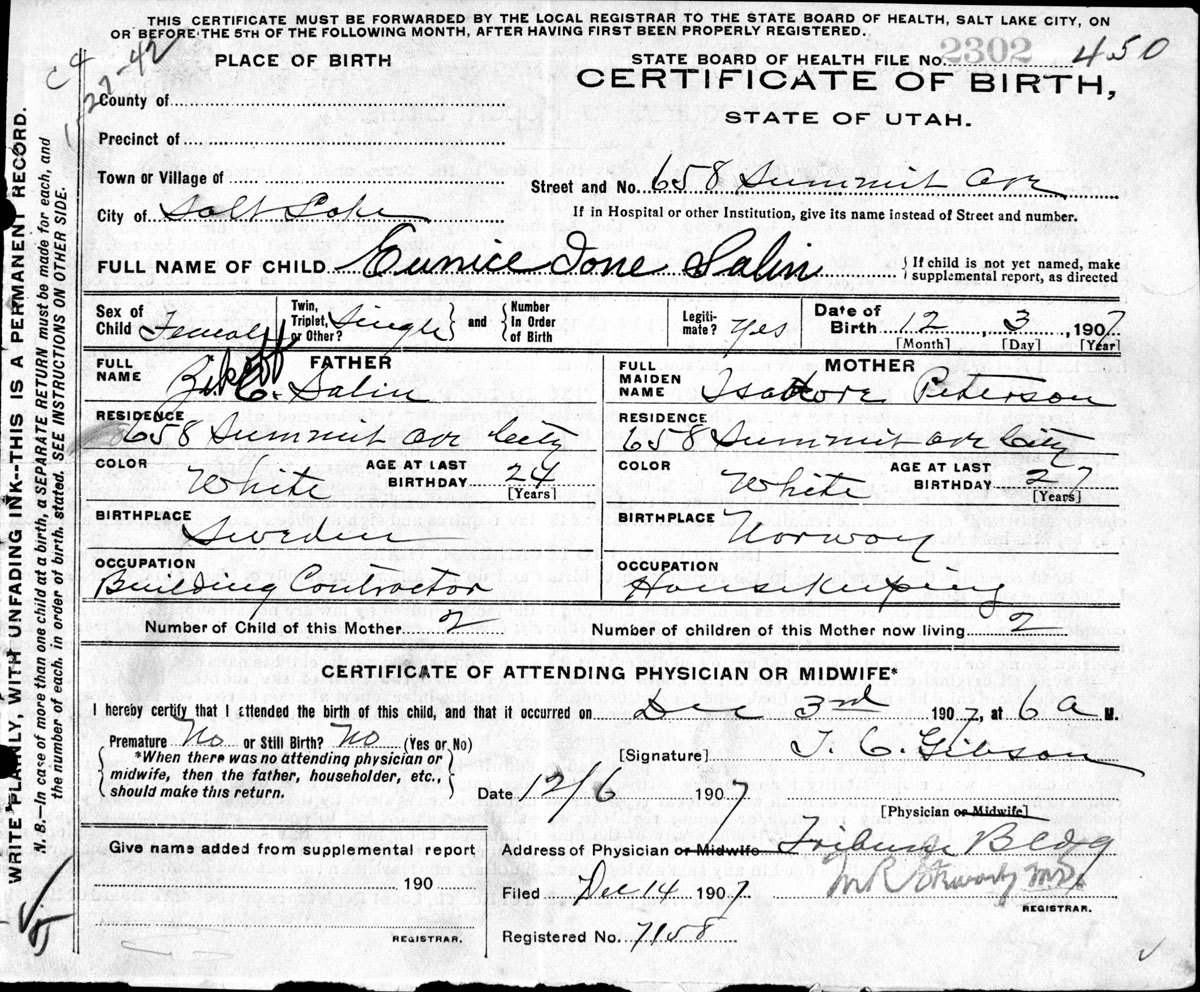 THIS CERTIFICATE MUST BE FORWARDED BY THE LOCAL REGISTRAR TO THE STATE BOARD OF HEALTH, SALT LAKE CITY, ON
OR BEFORE THE 5TH OF THE FOLLOWING MONTH, AFTER HAVING FIRST BEEN PROPERLY REGISTERED.
PLACE OF BIRTH
STATE BOARD OF HEALTH FILE No. 2302 450
1-27-42
CERTIFICATE OF BIRTH,
STATE OF UTAH.
County of
Precinct of
Town or Village of
Street and No. 658 Summit Ave
City of Salt Lake
If in Hospital or other Institution, give its name instead of Street and number.
FULL NAME OF CHILD Eunice Ione Salin
If child is not yet named, make supplemental report, as directed
Sex of Child Female
Twin, Triplet, or Other? Single and Number In Order of Birth
Legiti-mate? Yes
Date of Birth 12, 3, 1907
[Month] [Day] [Year]
FULL NAME FATHER C. Salin
FULL MAIDEN NAME MOTHER Isadore Peterson
RESIDENCE 658 Summit Ave City
RESIDENCE 658 Summit Ave City
COLOR White AGE AT LAST BIRTHDAY 24 [Years]
COLOR White AGE AT LAST BIRTHDAY 27 [Years]
BIRTHPLACE Sweden
BIRTHPLACE Norway
OCCUPATION Building Contractor
OCCUPATION Housekeeping
Number of Child of this Mother 2
Number of children of this Mother now living 2
CERTIFICATE OF ATTENDING PHYSICIAN OR MIDWIFE*
I hereby certify that I attended the birth of this child, and that it occurred on Dec 3rd 1907, at 6 a M.
Premature No or Still Birth? No (Yes or No)
*When there was no attending physician or
midwife, then the father, householder, etc.,
should make this return.
[Signature] T. C. Gibson
Date 12/6 1907
[Physician or Midwife]
Give name added from supplemental report
190
REGISTRAR.
Address of Physician or Midwife Tribune Bldg
Filed Dec 14 1907
REGISTRAR.
Registered No. 7158
WRITE PLAINLY, WITH UNFADING INK--THIS IS A PERMANENT RECORD.
N. B.--In case of more than one child at a birth, a SEPARATE RETURN must be made for each, and
the number of each, in order of birth, stated. SEE INSTRUCTIONS ON OTHER SIDE.